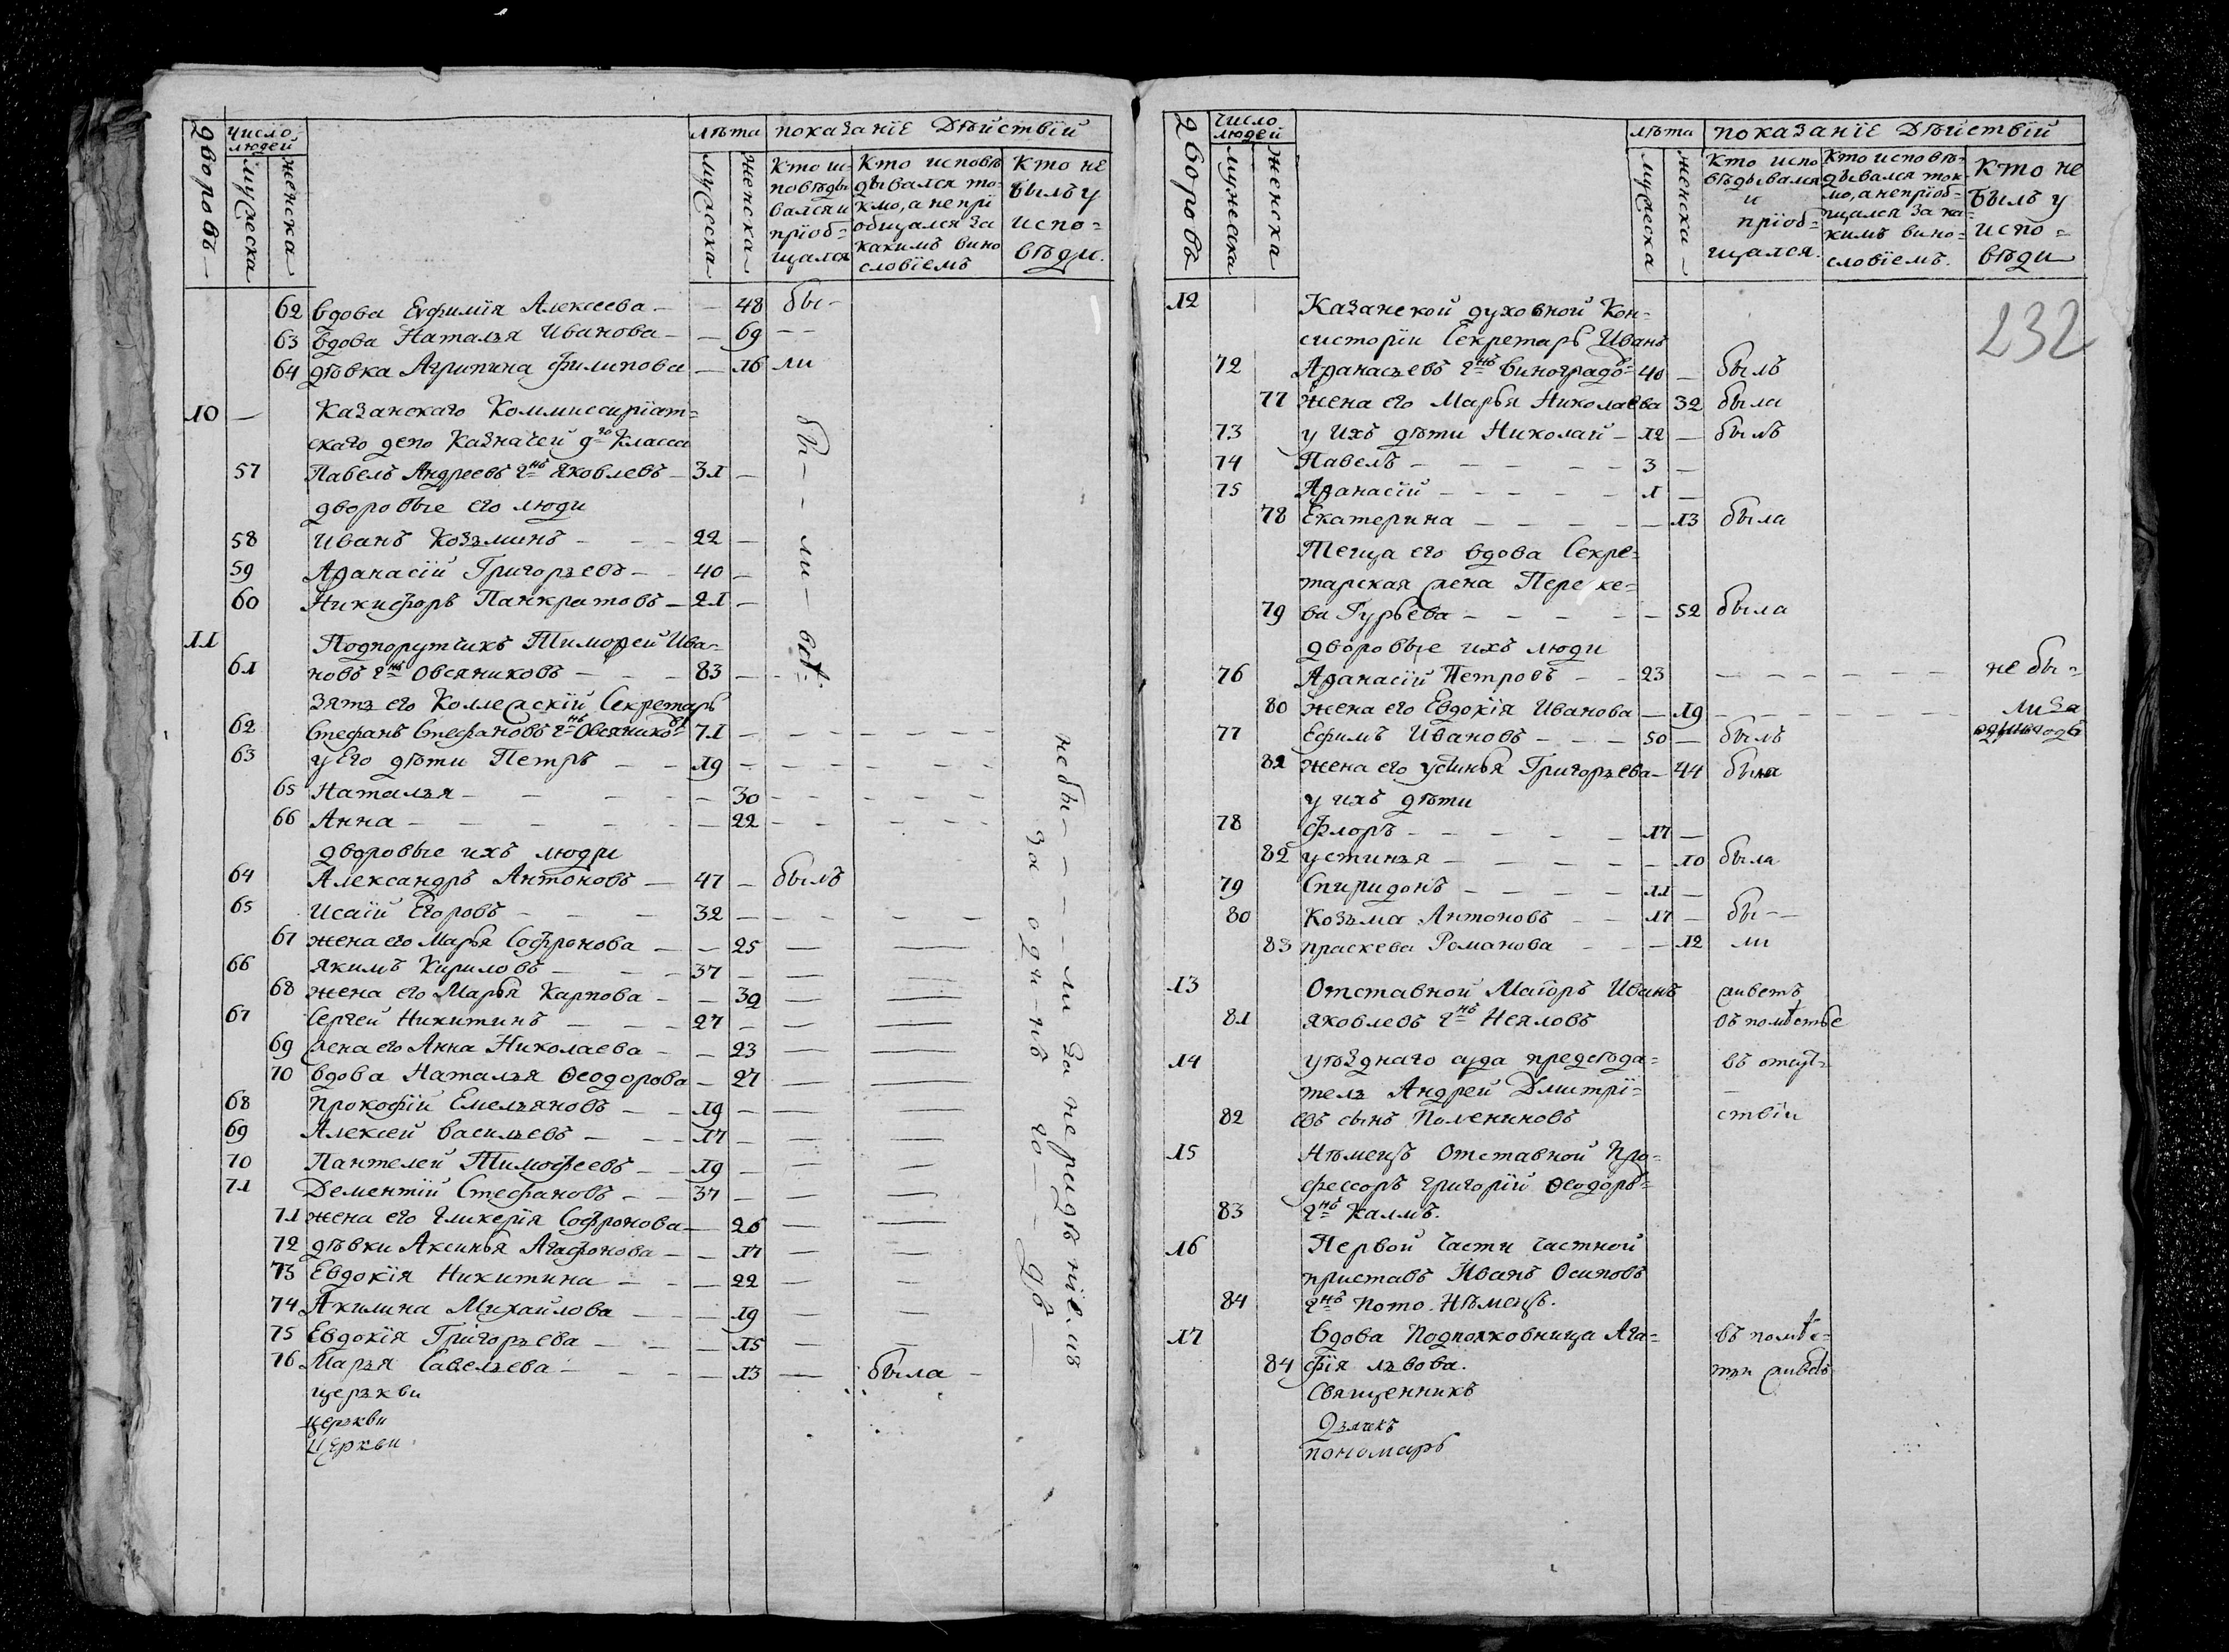 дворовъ
число людей
мужеска
женска
лѣта
мужеска
женска
показанїе дѣйствїй
Кто исповѣдывался и прїобщался
Кто исповѣдывался токмо, а не прїобщался за какимъ винословїемъ
Кто не былъ у исповѣди.
62 вдова Евфимїя Алексеева — — 48 бы-
63 вдова Наталья Иванова — — 69 — —
64 дѣвка Агрипина Филипова — 16 ли
10 — Казанскаго Коммисарїат=
скаго депо Казначей 9го Класса
57 Павелъ Андреевъ гнъ Яковлевъ — 31 —
дворовые его люди
58 Иванъ Козьминъ — — 22 —
59 Аѳанасїй Григорьевъ — 40 —
60 Никифоръ Панкратовъ — 21 —
бы — — ли — всѣ
11 Подпорутчикъ Тимоѳей Ива=
61 новъ гнъ Овсяниковъ — — 83 —
зять его Коллежскїй Секретарь
62 Стефанъ Стефановъ гнъ Овсянико=въ 71 — — — —
63 у Его дѣти Петръ — — 19 — — — —
65 Наталья — — — 30 — — — —
66 Анна — — — — 22 — — — —
дворовые ихъ люди
64 Александръ Антоновъ — 47 — былъ
65 Исаїй Егоровъ — — 32 — — —
67 жена его Марья Софронова — — 25 — —
66 Якимъ Кириловъ — — 37 — — —
68 жена его Марья Карпова — — 39 — —
67 Сергей Никитинъ — — 27 — — —
69 жена его Анна Николаева — — 23 — —
70 вдова Наталья Ѳеодорова — 27 — —
68 Прокофїй Емельяновъ — — 19 — — —
69 Алексей Васильевъ — — 17 — — —
70 Пантелей Тимофеевъ — — 19 — — —
71 Дементїй Стефановъ — — 37 — — —
71 жена его Гликерїя Софронова — 26 — —
72 дѣвки Аксинья Агафонова — — 17 — —
73 Евдокїя Никитина — — 22 — —
74 Акилина Михайлова — — 19 — —
75 Евдокїя Григорьева — — 15 — —
76 Марья Савельева — — 13 — была —
не бы — — — ли за нерадѣнїемъ
за одинъ го — дъ
церькви
церькви
церкви
дворовъ
число людей
мужеска
женска
лѣта
мужеска
женска
показанїе дѣйствїй
Кто исповѣдывался и прїобщался.
Кто исповѣдывался токмо, а не прїобщался за какимъ винословїемъ.
Кто не былъ у исповѣди
232
12 Казанской духовной Кон=
систорїи Секретарь Иванъ
72 Аѳанасьевъ гнъ Виноградо=въ 40 — былъ
77 жена его Марья Николаева 32 была
73 у Ихъ дѣти Николай — 12 — былъ
74 Павелъ — — — — 3 —
75 Аѳанасїй — — — — 1 —
78 Екатерина — — — — 13 была
Теща его вдова Секре=
тарская жена Переске=
79 ва Гурьева — — — — 52 была
дворовые ихъ люди
76 Аѳанасїй Петровъ — — 23 — — — — не бы=
80 жена его Евдокїя Иванова — 19 — — — — ли за
77 Ефимъ Ивановъ — — 50 — былъ одинъ годъ
81 жена его Устинья Григорьева — 44 была
у ихъ дѣти
78 Флоръ — — — — 17 —
82 Устинья — — — — 10 была
79 Спиридонъ — — — — 11 —
80 Козьма Антоновъ — — 17 — бы — —
83 Праскева Романова — — 12 ли
13 Отставной Маїоръ Иванъ живетъ
81 Яковлевъ гнъ Неяловъ въ помѣстье
14 уѣзднаго суда предсѣда= въ отсут=
тель Андрей Дмитрї=
82 евъ сынъ Полениновъ ствїи
15 Нѣмецъ Отставной Про=
фессоръ григорїй Ѳеодоръ=
83 гнъ Каллъ.
16 Первой Части Частной
приставъ Иванъ Осиповъ
84 гнъ Пото. Нѣмецъ.
17 Вдова Подполковница Ага= въ помѣс=
84 фїя Львова. тьи живетъ
Священникъ
Дьячекъ
пономарь